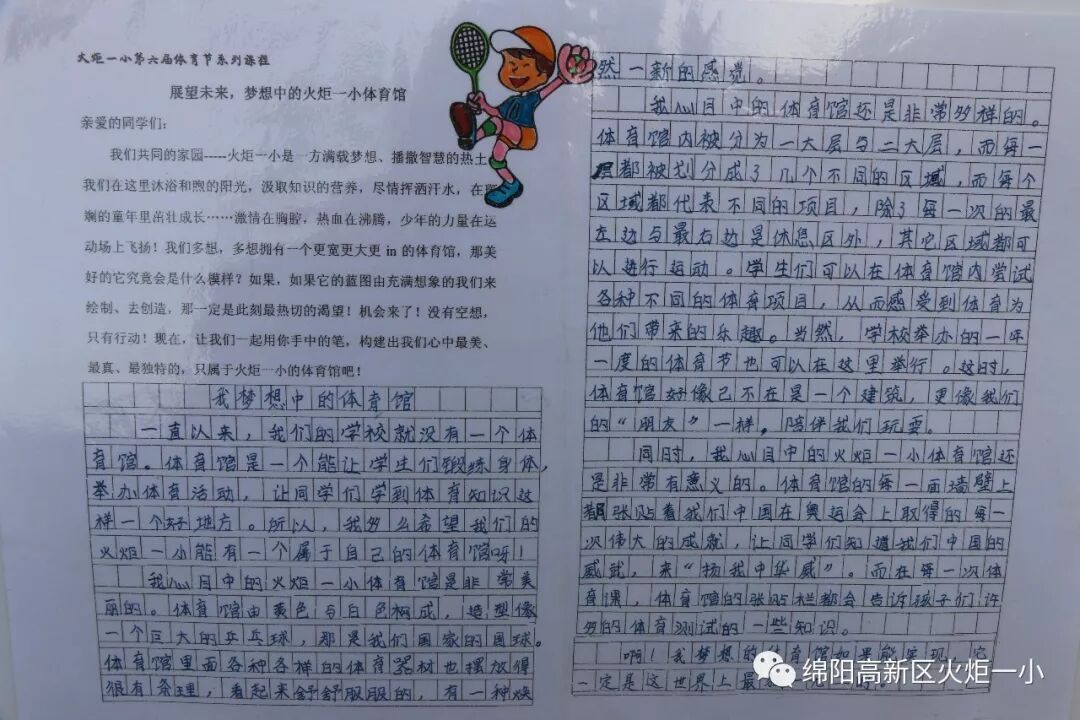 火炬一小第六届体育节系列课程
展望未来，梦想中的火炬一小体育馆
亲爱的同学们：
我们共同的家园-----火炬一小是一方满载梦想、播撒智慧的热土
我们在这里沐浴和煦的阳光，汲取知识的营养，尽情挥洒汗水，在
斓的童年里茁壮成长……激情在胸腔，热血在沸腾，少年的力量在运
动场上飞扬！我们多想，多想拥有一个更宽更大更 in 的体育馆，那美
好的它究竟会是什么模样？如果，如果它的蓝图由充满想象的我们来
绘制、去创造，那一定是此刻最热切的渴望！机会来了！没有空想，
只有行动！现在，让我们一起用你手中的笔，构建出我们心中最美、
最真、最独特的，只属于火炬一小的体育馆吧！
我梦想中的体育馆
一直以来，我们的学校就没有一个体
育馆。体育馆是一个能让学生们锻炼身体，
举办体育活动，让同学们学到体育知识这
样一个好地方。所以，我多么希望我们的
火炬一小能有一个属于自己的体育馆呀！
我心目中的火炬一小体育馆是非常美
丽的。体育馆由黄色与白色构成，造型像
一个巨大的乒乓球，那是我们国家的国球。
体育馆里面各种各样的体育器材也摆放得
很有条理，看起来舒舒服服的，有一种焕
然一新的感觉。
我心目中的体育馆还是非常多样的。
体育馆内被分为一大层与二大层，而每一
都被划分成了几个不同的区域，而每个
区域都代表不同的项目，除了每一次的最
左边与最右边是休息区外，其它区域都可
以进行运动。学生们可以在体育馆内尝试
各种不同的体育项目，从而感受到体育为
他们带来的乐趣。当然，学校举办的一年
一度的体育节也可以在这里举行。这时，
体育馆好像已不在是一个建筑，更像我们
的“朋友”一样。陪伴我们玩耍。
同时，我心目中的火炬一小体育馆还
是非常有意义的。体育馆的每一面墙壁上
都张贴着我们中国在奥运会上取得的每一
次伟大的成就，让同学们知道我们中国的
威武，来“扬我中华威”。而在每一次体
育课，体育馆的张贴栏都会告诉孩子们许
多的体育测试的一些知识。
啊！我梦想的体育馆如果能实现，它
一定是这世界上最
绵阳高新区火炬一小